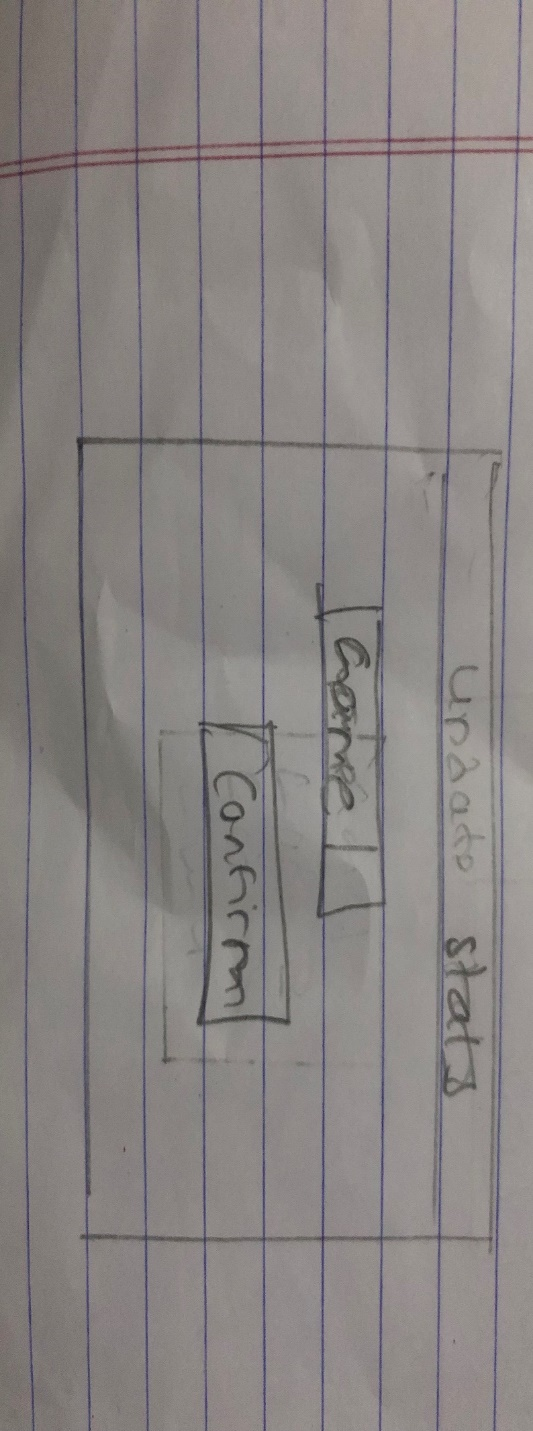 Update stats
Game
Confirm